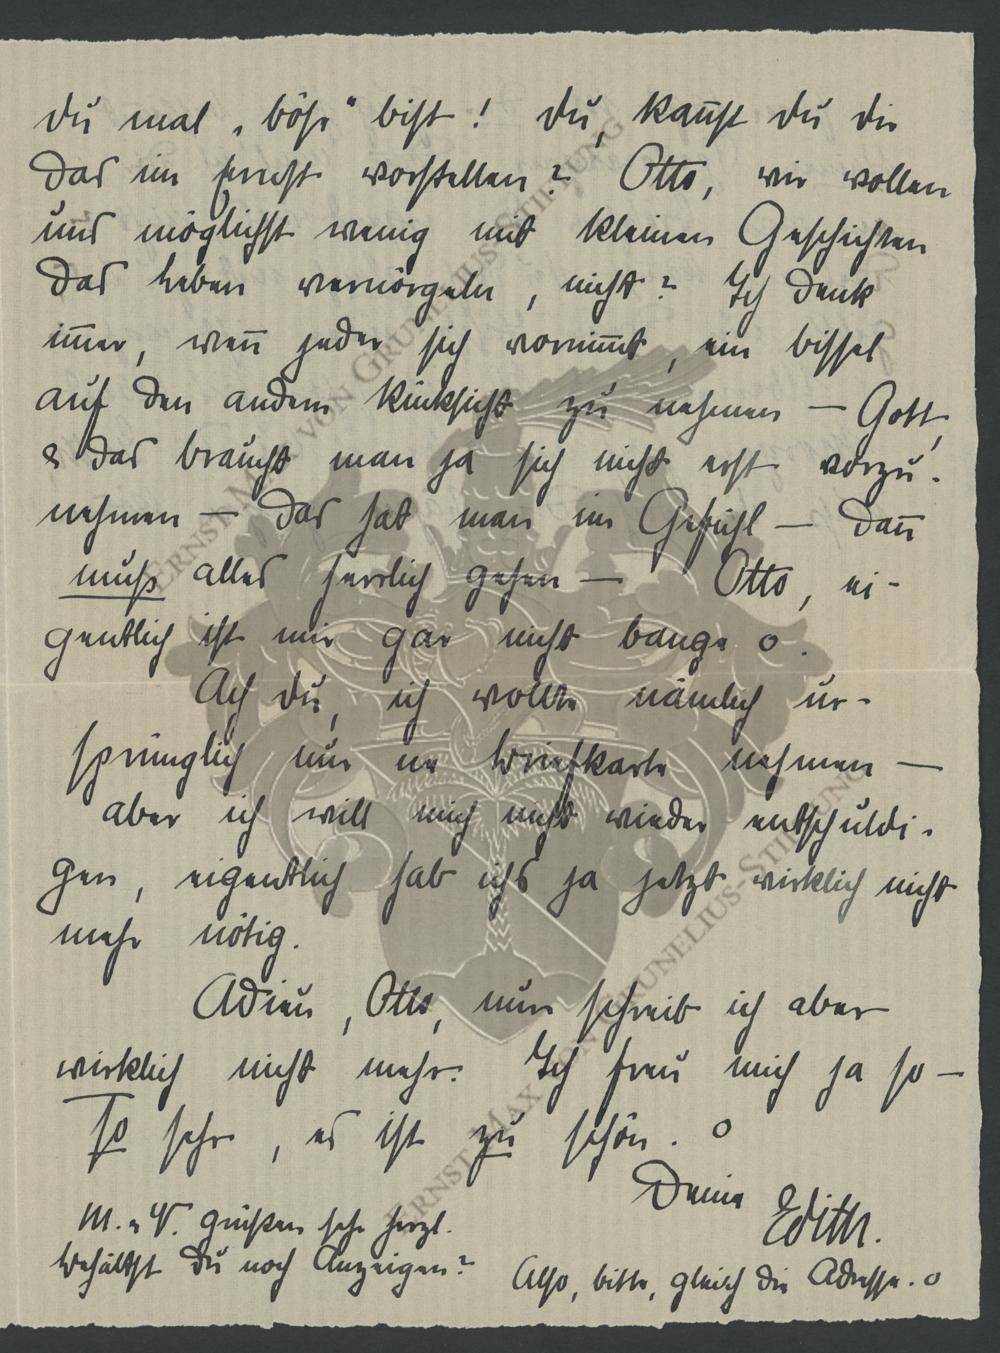 du mal „böse“ bist! Du, kannst du dir
das im Ernst vorstellen? Otto, wir wollen
uns möglichst wenig mit kleinen Geschichten
das Leben vernörgeln, nicht? Ich denk
im̄er, wen̄ jeder sich vornim̄t, ein bissel
auf den andern Rücksicht zu nehmen — Gott,
& das braucht man ja sich nicht erst vorzu-
nehmen — das hat man im Gefühl — dan̄
muß alles herrlich gehen — Otto, ei-
gentlich ist mir gar nicht bange o.
Ach du, ich wollte nämlich ur-
sprünglich nur ne Briefkarte nehmen —
aber ich will mich nicht wieder entschuldi-
gen, eigentlich hab ichs ja jetzt wirklich nicht
mehr nötig.
Adieu, Otto, nun schreib ich aber
wirklich nicht mehr. Ich freu mich ja so —
so sehr, es ist zu schön. o
Deine Edith.
M. u. V. grüßen sehr herzl.
Behältst Du noch Anzeigen?
Also, bitte, gleich die Adresse. o
ERNST MAX VON GRUNELIUS-STIFTUNG
ERNST MAX VON GRUNELIUS-STIFTUNG